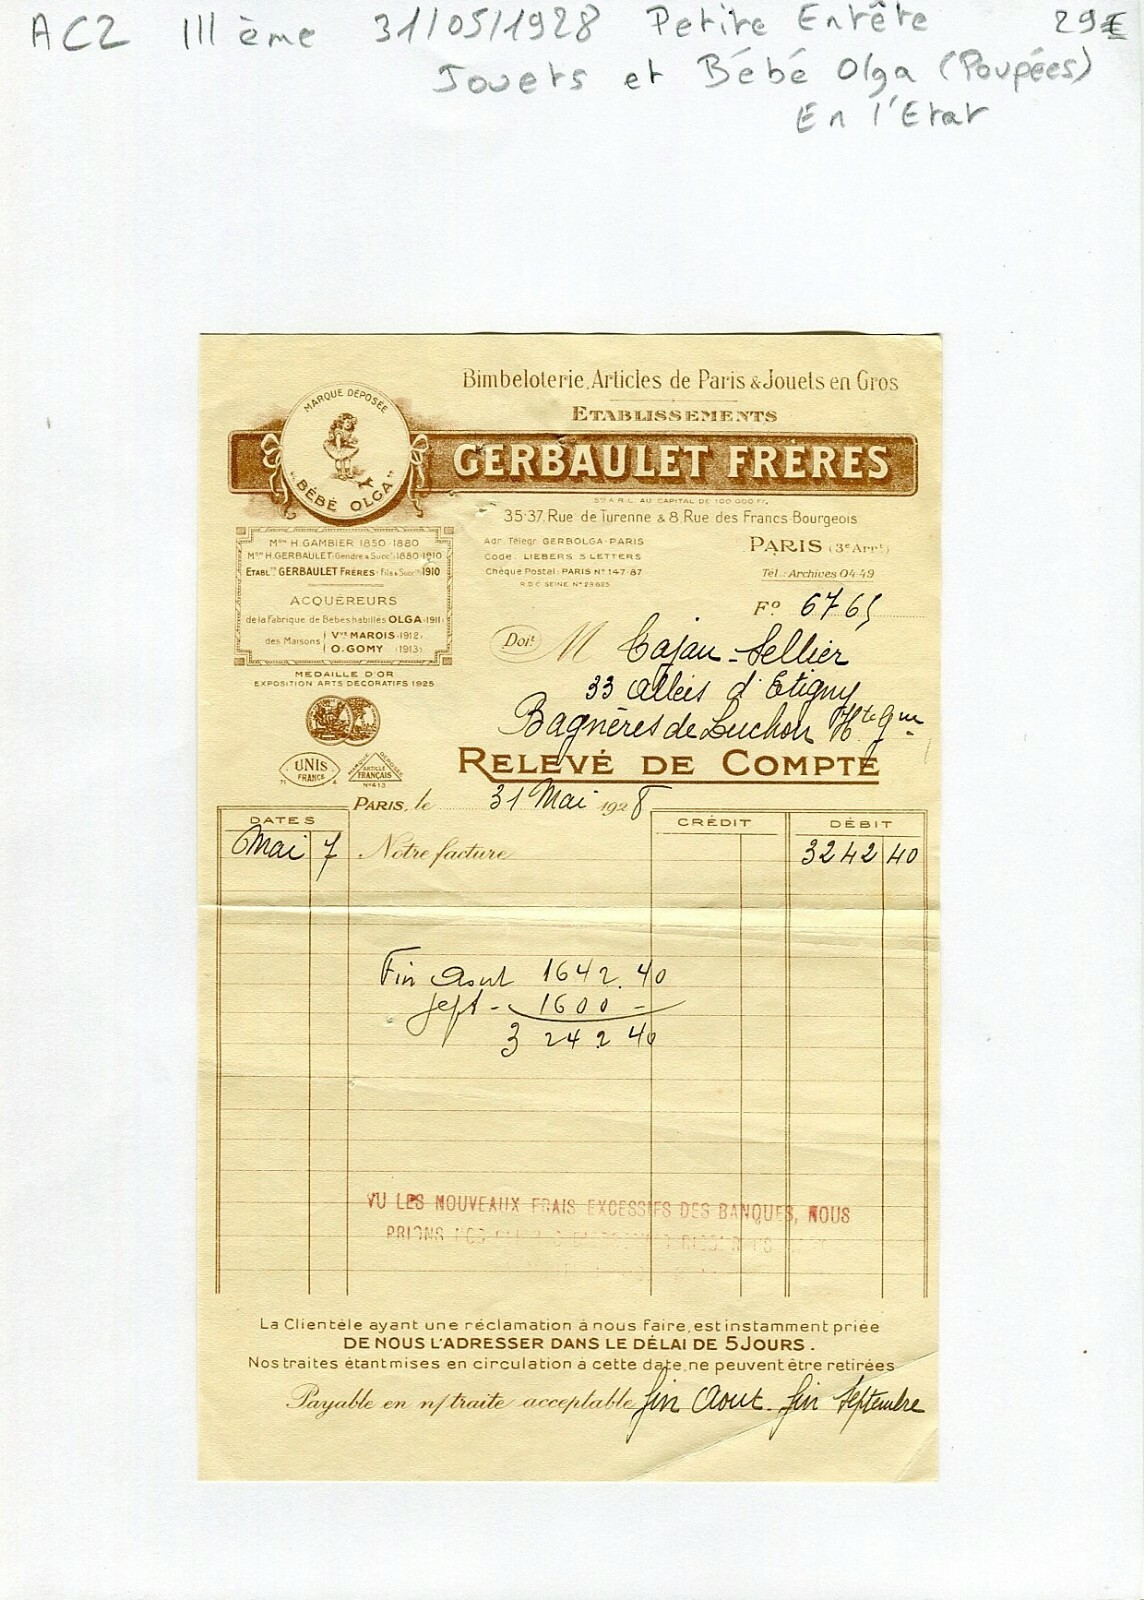 AC2 IIIème 31/05/1928 Petite Entête 29€
Jouets et Bébé Olga (Poupées)
En l'Etat
Bimbeloterie, Articles de Paris & Jouets en Gros
ETABLISSEMENTS
GERBAULET FRÈRES
MARQUE DÉPOSÉE
"BÉBÉ OLGA"
Sté A.R.L. AU CAPITAL DE 100.000 Fr.
35-37, Rue de Turenne & 8, Rue des Francs-Bourgeois
Adr. Télégr. GERBOLGA-PARIS
Code: LIEBERS 5 LETTERS
Chèque Postal: PARIS N° 147-87
R.D.C SEINE N° 29.625
PARIS (3e Arrt)
Tél.: Archives 04-49
Mon H. GAMBIER 1850-1880
Mon H. GERBAULET (Gendre & Succr) 1880-1910
ETABLts GERBAULET FRÈRES - Fils & Succrs 1910
ACQUÉREURS
de la Fabrique de Bébés habillés OLGA (1911)
des Maisons Vve MAROIS (1912)
O. GOMY (1913)
MEDAILLE D'OR
EXPOSITION ARTS DÉCORATIFS 1925
UNIS
FRANCE
MARQUE DÉPOSÉE
ARTICLE
FRANÇAIS
N° 413
F° 6765
Doit M Cajau-Sellier
33 allées d'Etigny
Bagnères de Luchon Hte Gne
RELEVÉ DE COMPTE
PARIS, le 31 Mai 1928
DATES CRÉDIT DÉBIT
Mai 7 Notre facture 3242 40
Fin Aout 1642.40
Sept - 1600 -
3 242 40
VU LES NOUVEAUX FRAIS EXCESSIFS DES BANQUES, NOUS
PRIONS NOS
La Clientèle ayant une réclamation à nous faire, est instamment priée
DE NOUS L'ADRESSER DANS LE DÉLAI DE 5 JOURS.
Nos traites étant mises en circulation à cette date, ne peuvent être retirées
Payable en n/traite acceptable fin Aout - fin Septembre